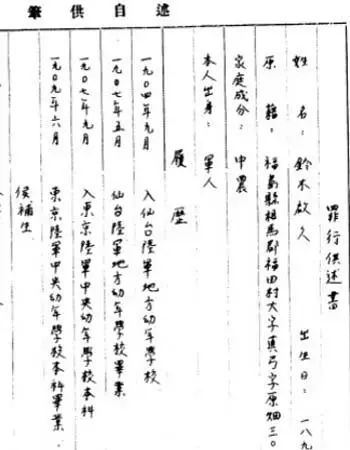 筆供自述
罪行供述書
姓名：鈴木啟久 出生日：一八九
原籍：福島縣相馬郡福田村大字真弓字原畑三〇
家庭成分：中農
本人出身：軍人
履歷
一九〇四年九月 入仙台陸軍地方幼年學校
一九〇七年五月 仙台陸軍地方幼年學校畢業
一九〇七年九月 入東京陸軍中央幼年學校本科
一九〇九年六月 東京陸軍中央幼年學校本科畢業.
候補生